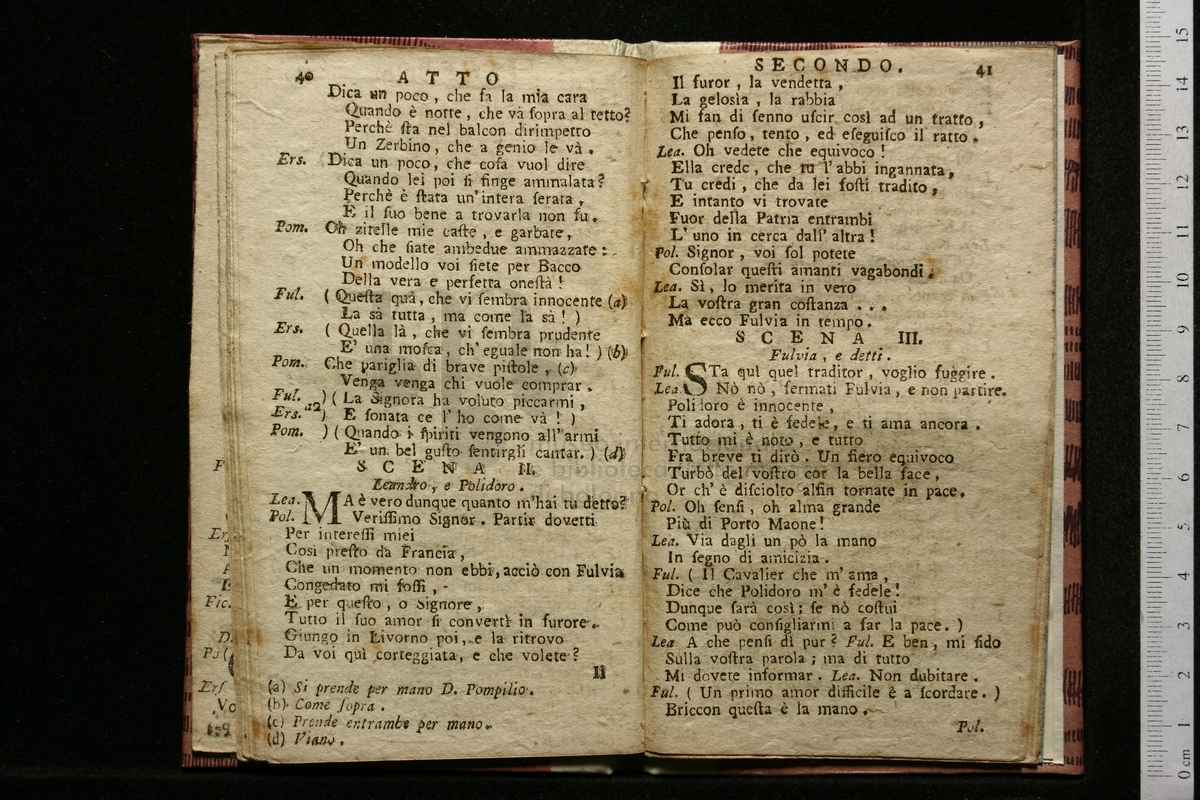 40 ATTO
Dica un poco, che fa la mia cara
Quando è notte, che và ſopra al tetto?
Perchè ſta nel balcon dirimpetto
Un Zerbino, che a genio le và.
Ers. Dica un poco, che coſa vuol dire
Quando lei poi ſi finge ammalata?
Perchè è ſtata un'intera ſerata,
E il ſuo bene a trovarla non fu.
Pom. Oh zitelle mie caſte, e garbate,
Oh che ſiate ambedue ammazzate:
Un modello voi ſiete per Bacco
Della vera e perfetta oneſtà!
Ful. (Queſta quà, che vi ſembra innocente (a)
La sà tutta, ma come la sà!)
Ers. (Quella là, che vi ſembra prudente
E' una moſca, ch'eguale non ha!) (b)
Pom. Che pariglia di brave piſtole, (c)
Venga venga chi vuole comprar.
Ful. ) ( La Signora ha voluto piccarmi,
Ers. a2 ) E ſonata ce l'ho come và!)
Pom. ) ( Quando i ſpiriti vengono all'armi
E' un bel guſto ſentirgli cantar.) (d)
SCENA II.
Leandro, e Polidoro.
Lea. MA è vero dunque quanto m'hai tu detto?
Pol. Veriſſimo Signor. Partir dovetti
Per intereſſi miei
Così preſto da Francia,
Che un momento non ebbi, acciò con Fulvia
Congedato mi foſſi,
E per queſto, o Signore,
Tutto il ſuo amor ſi convertì in furore.
Giungo in Livorno poi, e la ritrovo
Da voi quì corteggiata, e che volete?
Il
(a) Si prende per mano D. Pompilio.
(b) Come ſopra.
(c) Prende entrambe per mano.
(d) Viano.
SECONDO. 41
Il furor, la vendetta,
La geloſìa, la rabbia
Mi fan di ſenno uſcir così ad un tratto,
Che penſo, tento, ed eſeguiſco il ratto.
Lea. Oh vedete che equivoco!
Ella crede, che tu l'abbi ingannata,
Tu credi, che da lei foſti tradito,
E intanto vi trovate
Fuor della Patria entrambi
L'uno in cerca dall'altra!
Pol. Signor, voi ſol potete
Conſolar queſti amanti vagabondi.
Lea. Sì, lo merita in vero
La voſtra gran coſtanza...
Ma ecco Fulvia in tempo.
SCENA III.
Fulvia, e detti.
Ful. STa quì quel traditor, voglio fuggire.
Lea. Nò nò, fermati Fulvia, e non partire.
Polidoro è innocente,
Ti adora, ti è fedele, e ti ama ancora.
Tutto mi è noto, e tutto
Fra breve ti dirò. Un fiero equivoco
Turbò del voſtro cor la bella face,
Or ch'è diſciolto alfin tornate in pace.
Pol. Oh ſenſi, oh alma grande
Più di Porto Maone!
Lea. Via dagli un pò la mano
In ſegno di amicizia.
Ful. (Il Cavalier che m'ama,
Dice che Polidoro m'è fedele!
Dunque ſarà così; ſe nò coſtui
Come può conſigliarmi a far la pace.)
Lea. A che penſi di pur? Ful. E ben, mi fido
Sulla voſtra parola; ma di tutto
Mi dovete informar. Lea. Non dubitare.
Ful. (Un primo amor difficile è a ſcordare.)
Briccon queſta è la mano.
Pol.